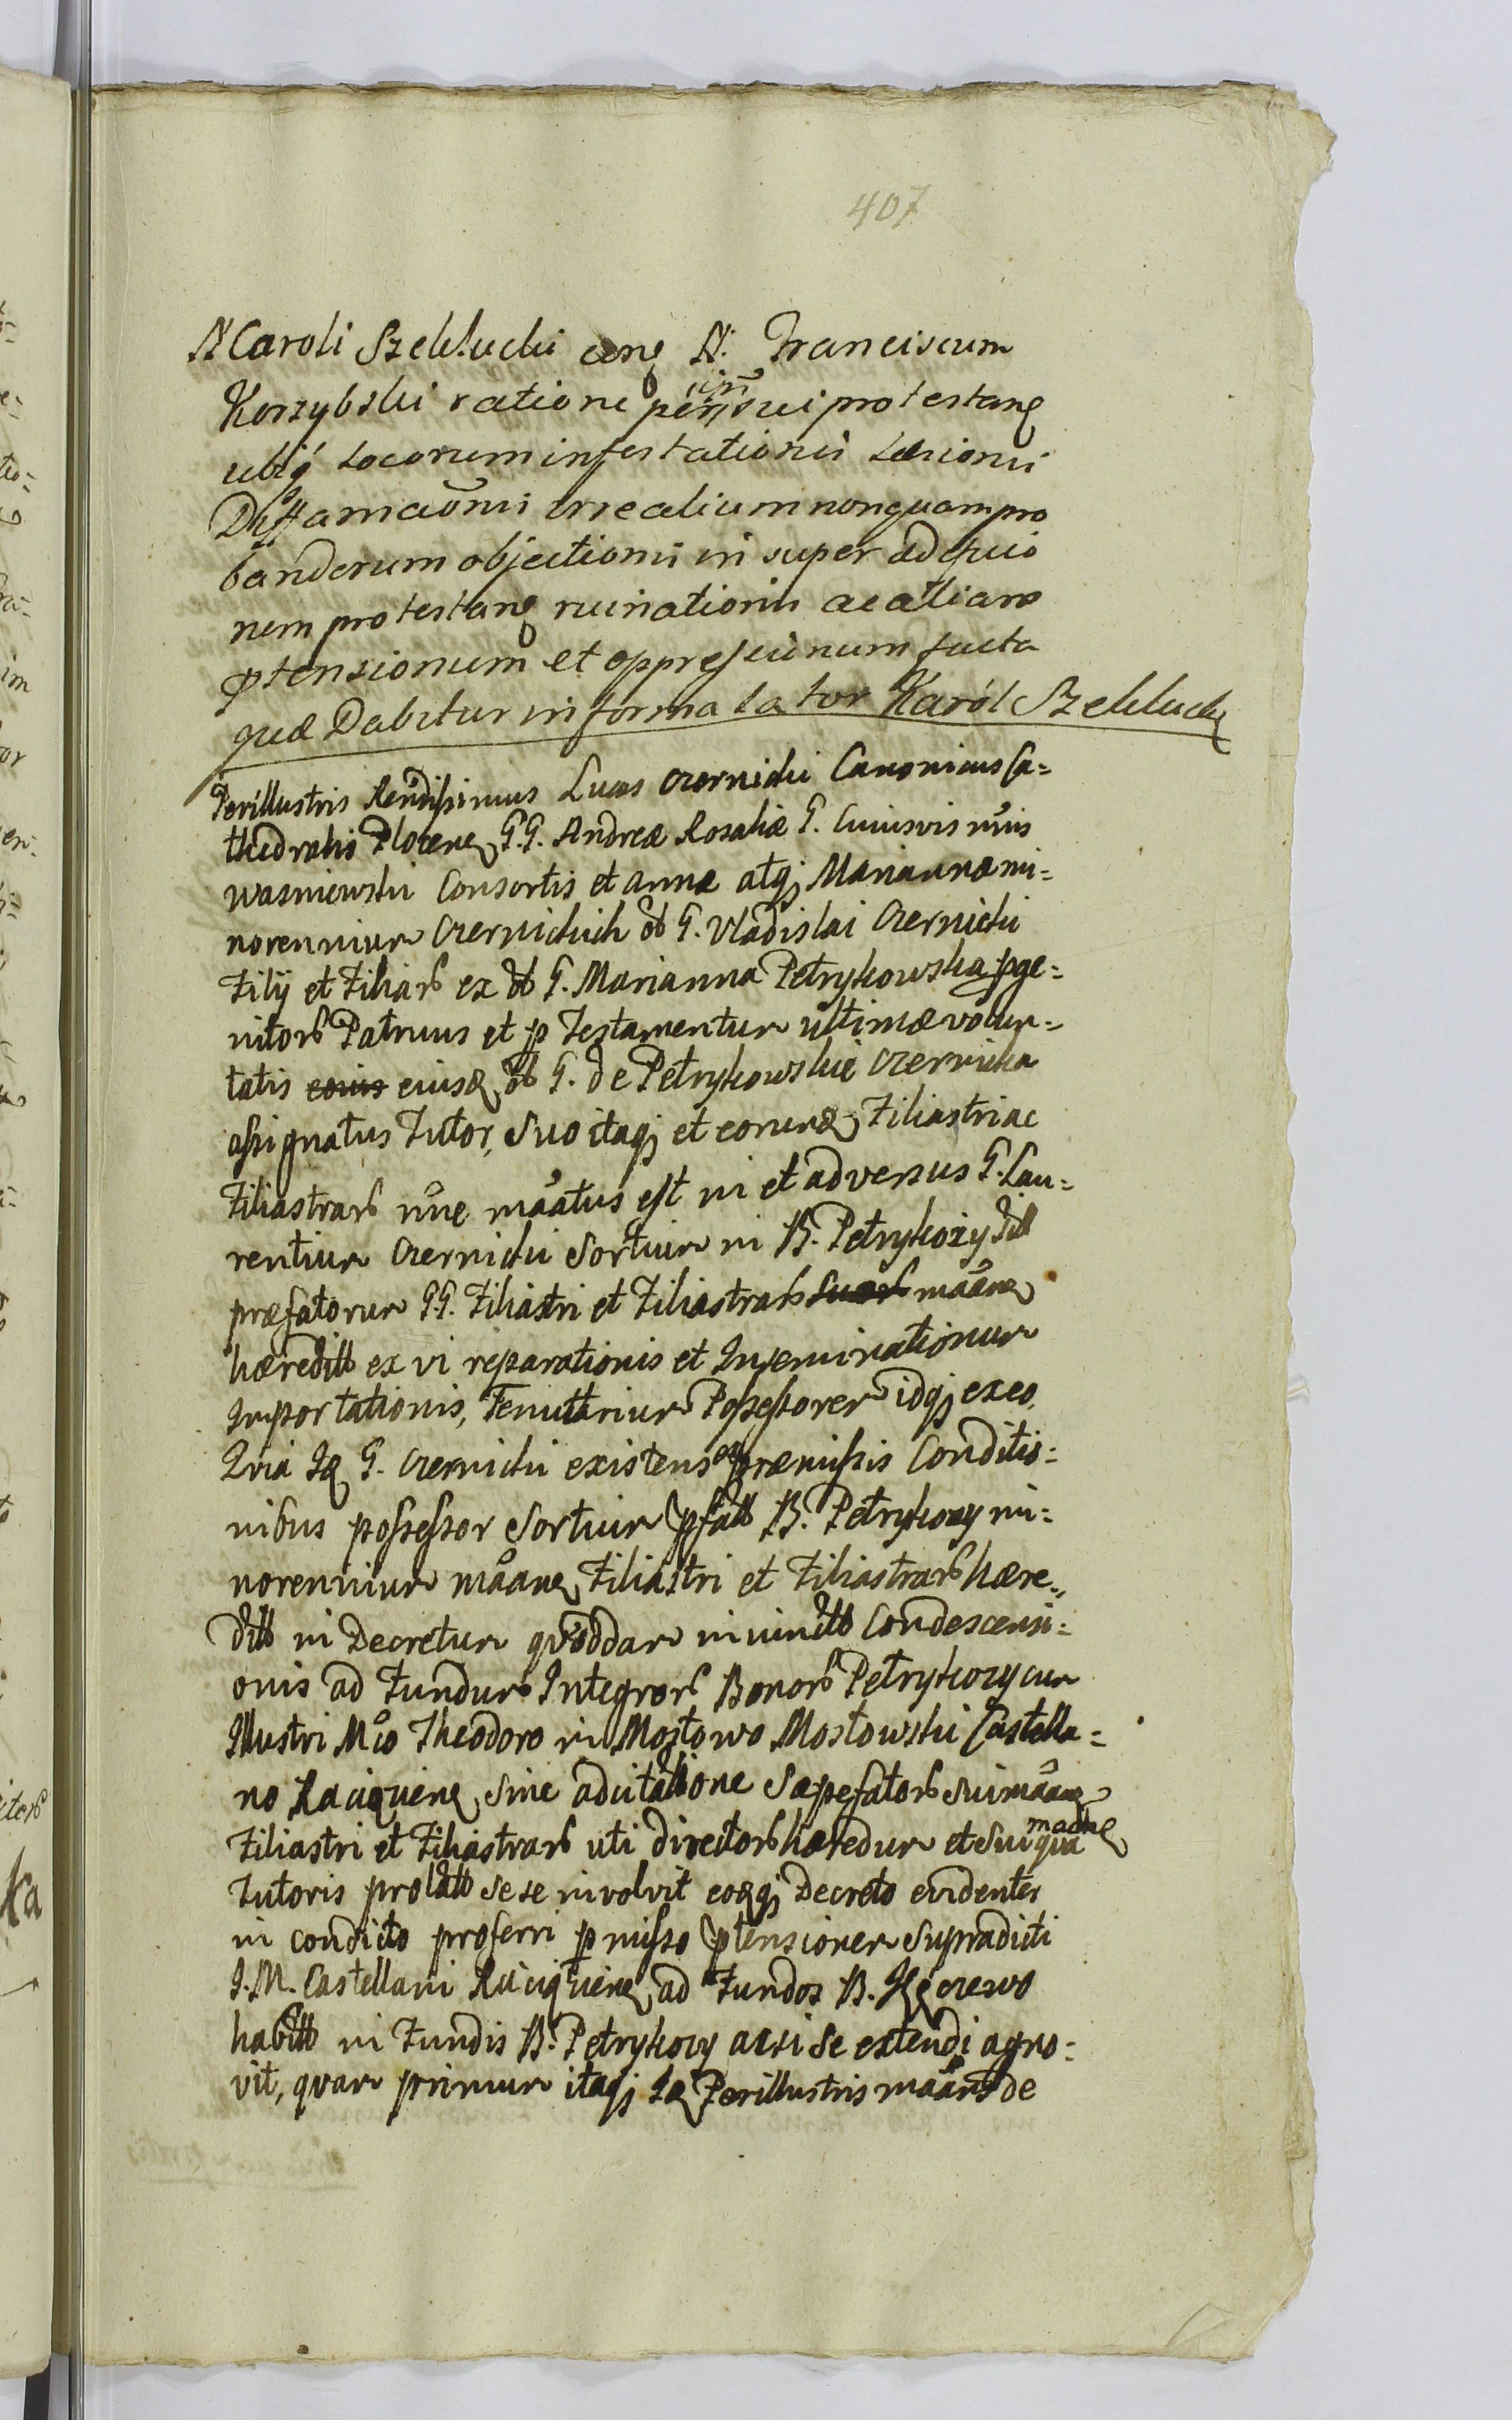 407
N Caroli Szekłucki con N. Franciscum
Korzybski ratione in sui protestan
ubiq locorum infestationis Læsionis
Diffamaōnis irrealium nonquam pro
bandorum objectionis in super ad
nem protestan ruinationis ac aliaro
ptensionum et oppressionum facta
quæ Dabitur in forma lator Karól Szekłucki
Perillustris Rendissimus Lucas Czernicki Canonicus Ca=
thedralis Plocen G.G. Andreæ Rosaliæ G. Cuiusvis nūis
Wasniewski Consortis et Annæ atq Mariannæ mi=
norennium Czernickich G. Vladislai Czernicki
Filij et Filiar ex G. Marianna Petrykowska pge=
nitor Patruus et p Testamentum ultimæ volun=
tatis eiusd G. de Petrykowskie Czernicka
assignatus Tutor, Suo itaq et eorund Filiastri ac
Filiastrar nūe māatus est in et adversus G. Lau=
rentium Czernicki Sortium in B. Petrykozy
præfatorum G.G. Filiastri et Filiastrar māan
hæredit ex vi reparationis et Inseminationum
Importationis, Tenutarium Possessorem idq ex eo.
Quia Id G. Czernicki existens ex præmissis Conditio=
nibus possessor Sortium pfat B. Petrykozy mi=
norennium māan Filiastri et Filiastrar hære=
dit in Decretum quoddam in vindt Condescensi=
onis ad Fundum Integror Bonor Petrykozy cum
Illustri Mco Theodoro in Mostowo Mostowski Castella=
no Raciązien, sine adcitatione Sæpefator sui māan
Filiastri et Filiastrar uti director hæredum et Sui qua
Tutoris prolat sese involvit eodq Decreto evidenter
in condicto proferri p misso ptensionem Supradicti
I. M. Castellani Raciązien, ad Fundos B.
habit in Fundis B. Petrykozy acsi se extendi agno=
vit, quam primum itaq Id Perillustris māans de